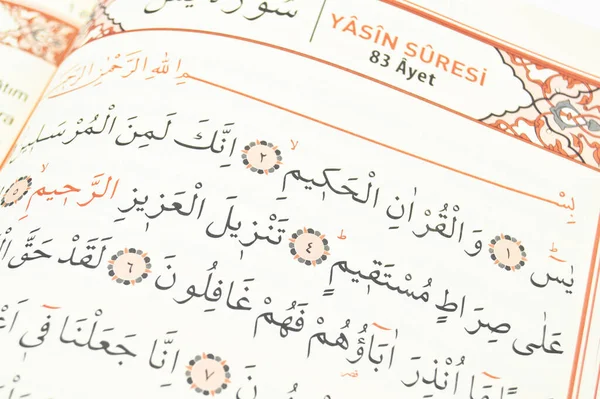 سُورَةُ يٰسٓ
YÂSİN SÛRESİ
83 Âyet
بِسْمِ اللّٰهِ الرَّحْمٰنِ الرَّحٖيمِ
يٰسٓ ﴿١﴾ وَالْقُرْاٰنِ الْحَكٖيمِ ﴿٢﴾ اِنَّكَ لَمِنَ الْمُرْسَلٖينَ
عَلٰى صِرَاطٍ مُسْتَقٖيمٍ ﴿٤﴾ تَنْزٖيلَ الْعَزٖيزِ الرَّحٖيمِ ﴿٥﴾
مَٓا اُنْذِرَ اٰبَٓاؤُهُمْ فَهُمْ غَافِلُونَ ﴿٦﴾ لَقَدْ حَقَّ
﴿٧﴾ اِنَّا جَعَلْنَا فٖٓي